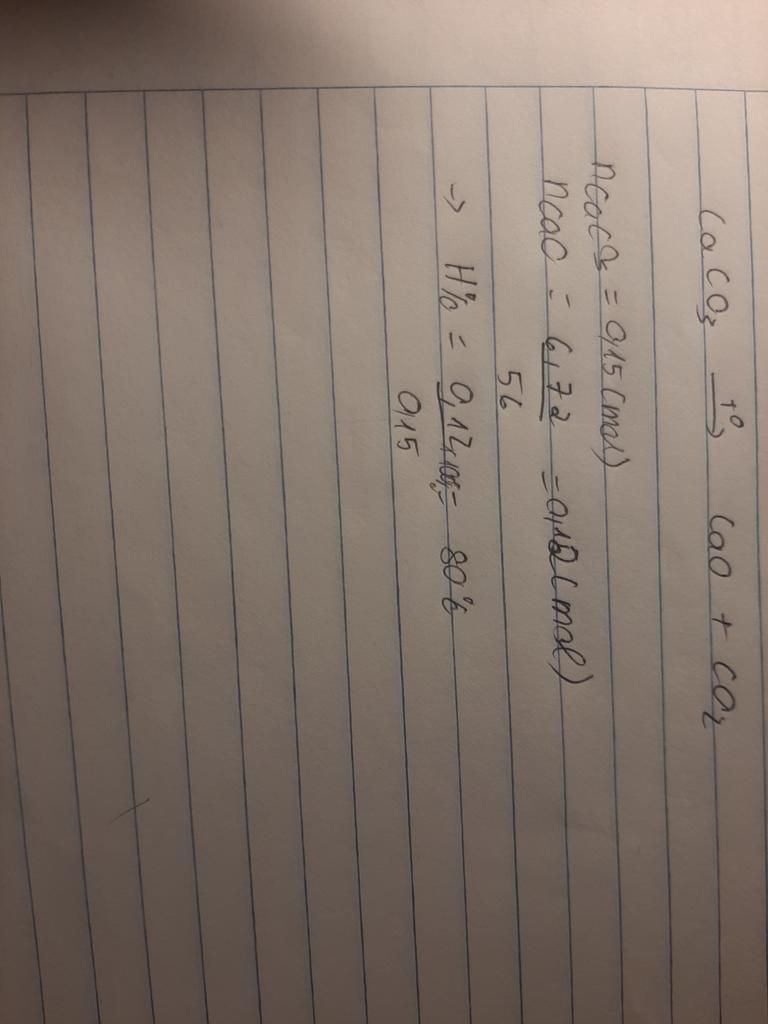 CaCO3 t° → CaO + CO2
nCaCO3 = 0,15 (mol)
nCaO = 6,72 / 56 = 0,12 (mol)
→ H% = 0,12.100% / 0,15 = 80%